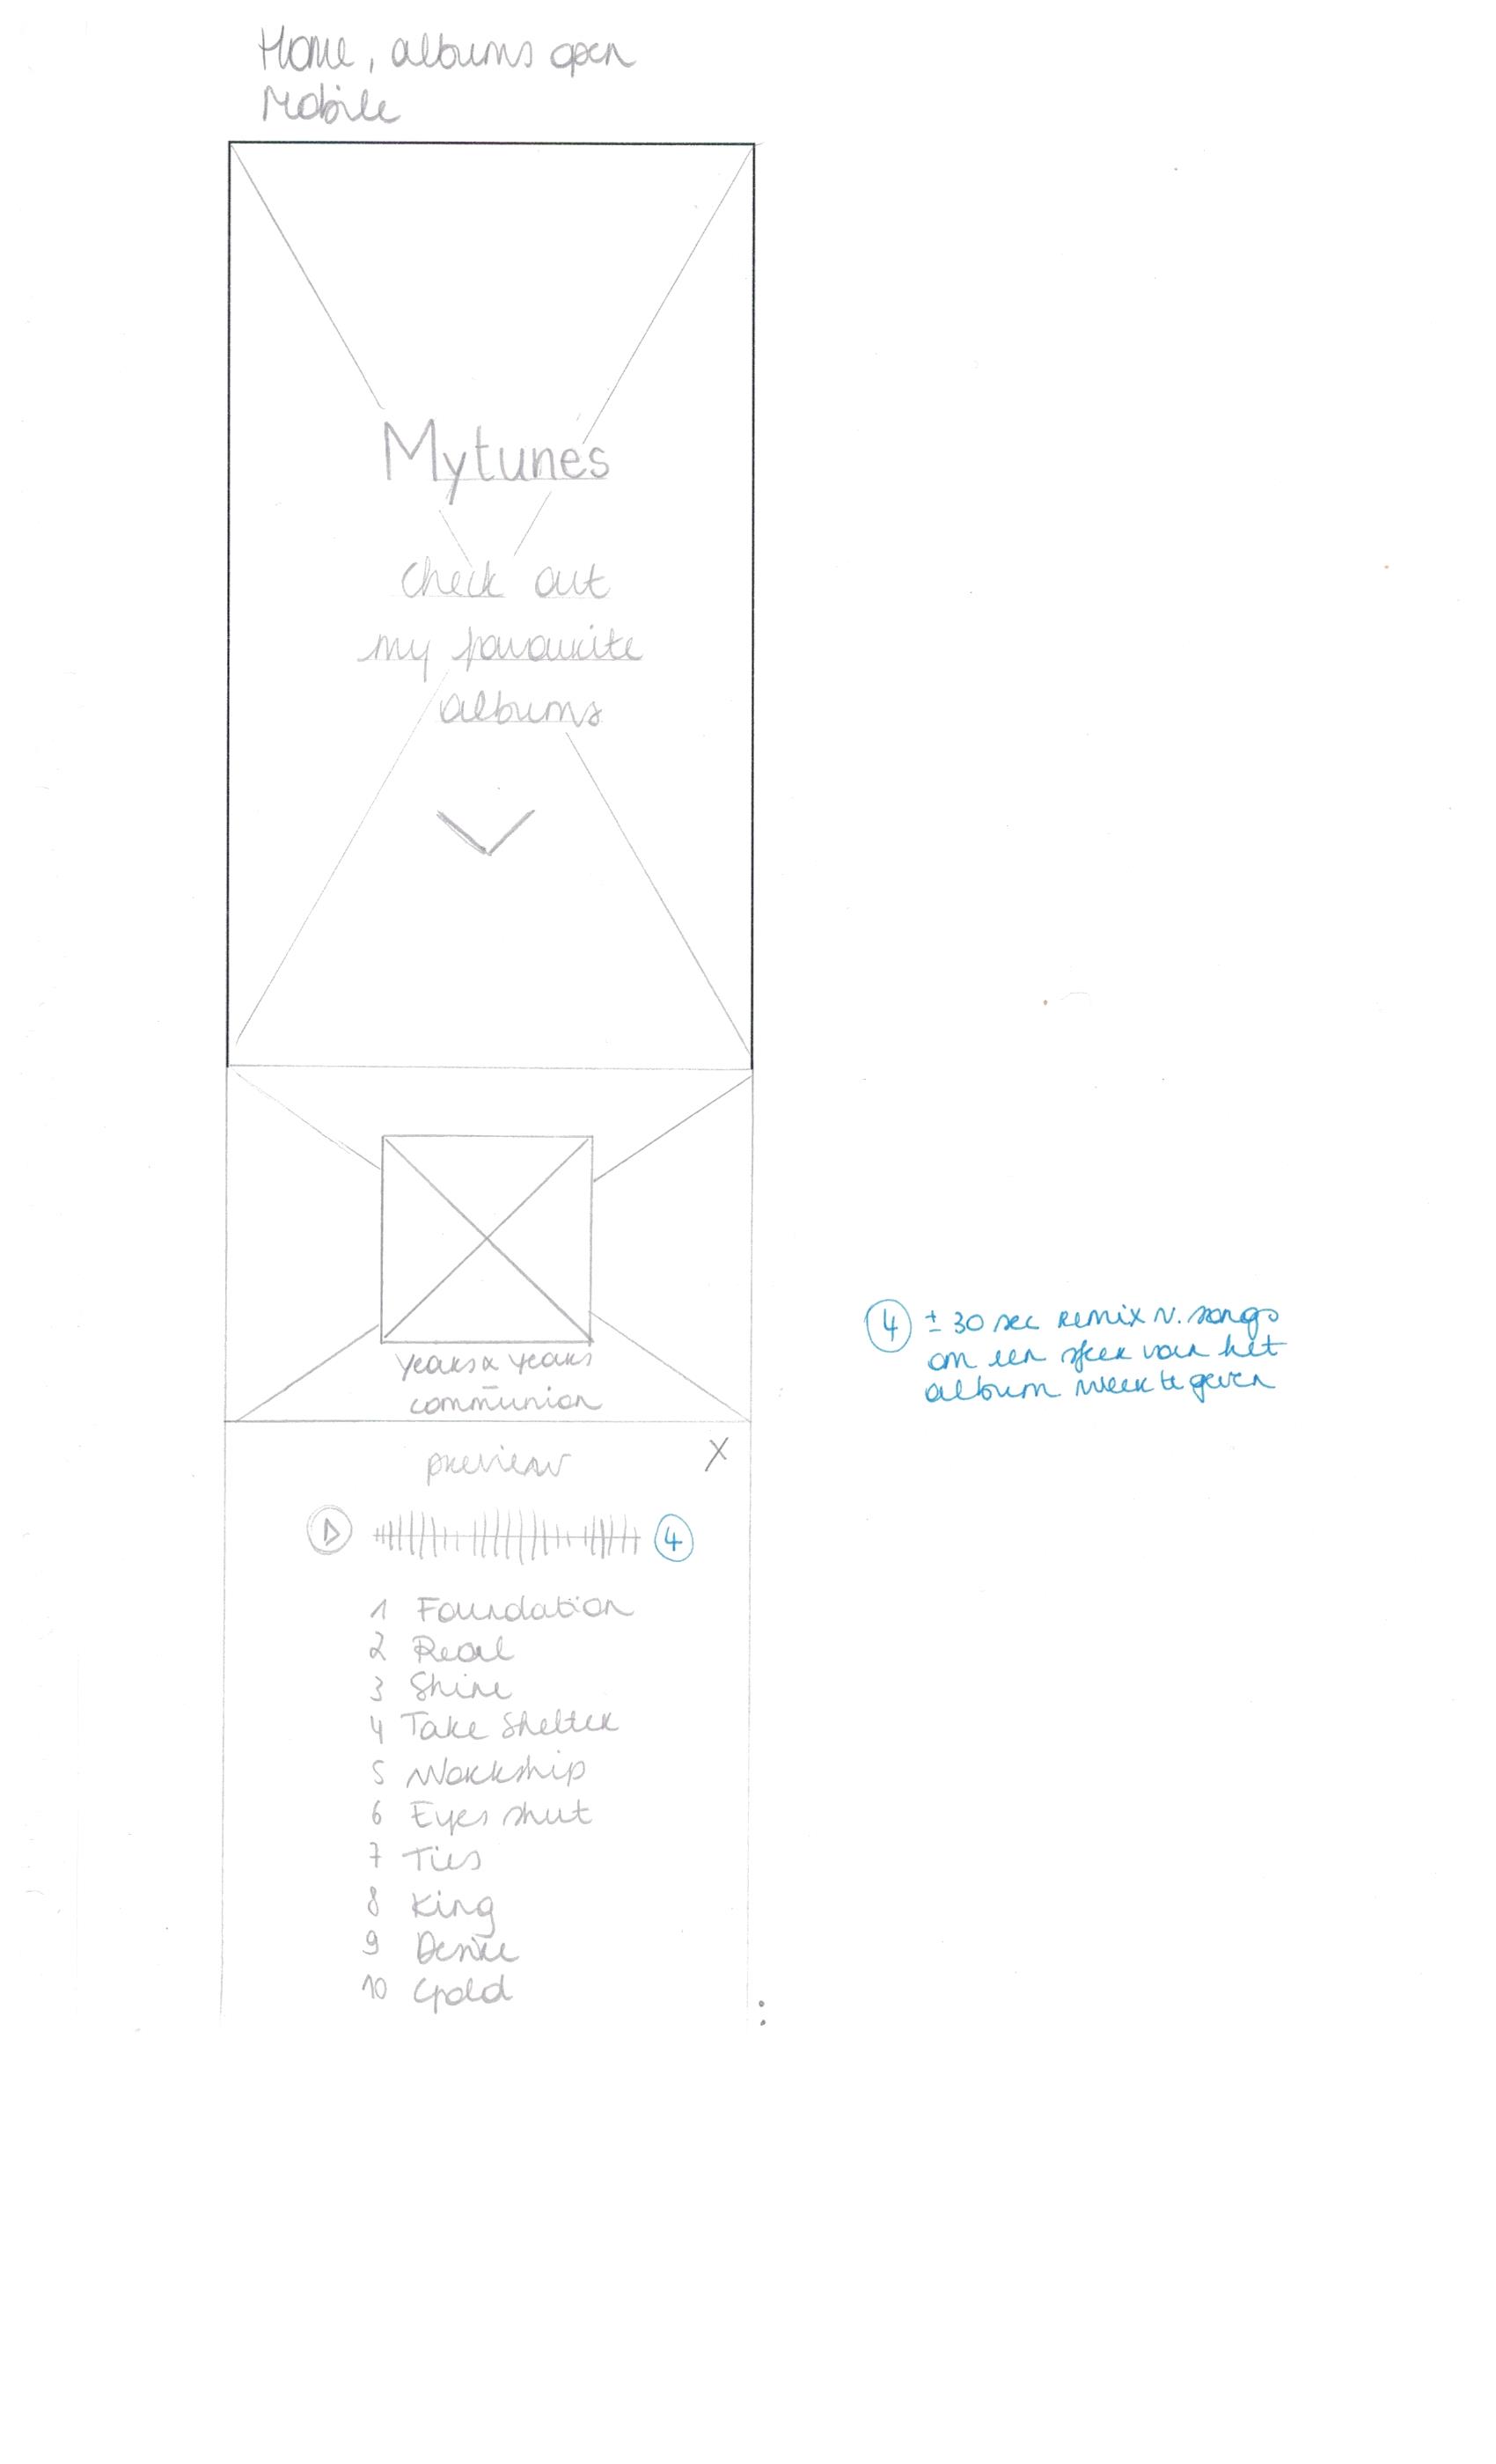 Home, albums open
Mobile
Mytunes
check out
my favourite
albums
years & years
communion
preview
X
4
1 Foundation
2 Real
3 Shine
4 Take Shelter
5 Workship
6 Eyes shut
7 Ties
8 King
9 Desire
10 Gold
4 ± 30 sec remix v. songs
om een sfeer van het
album weer te geven